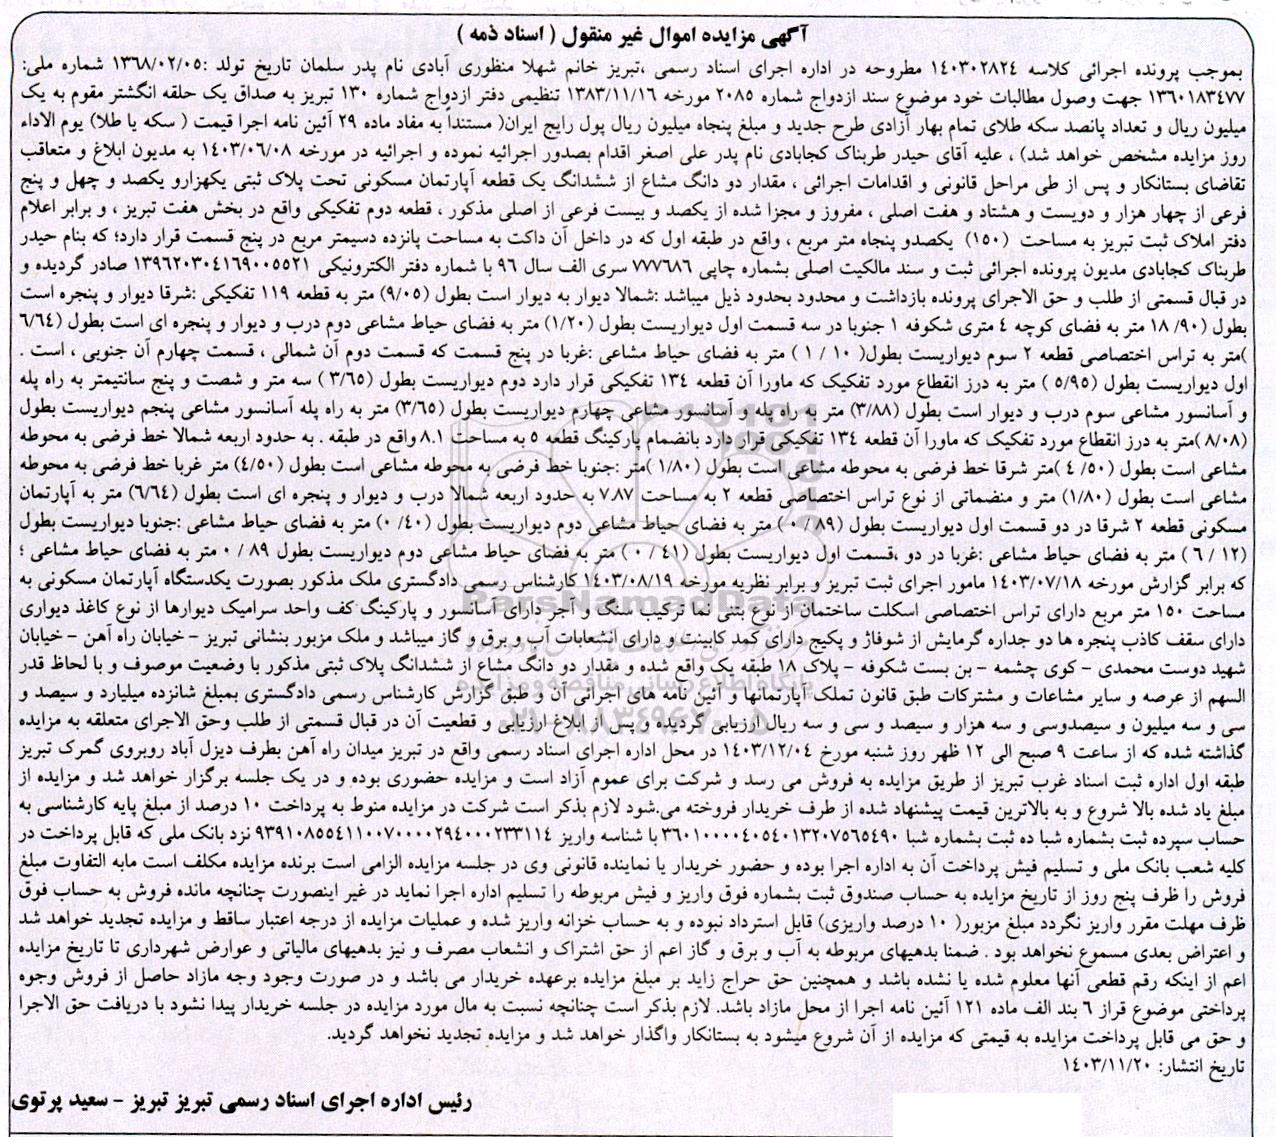 آگهی مزایده اموال غیر منقول ( اسناد ذمه )
بموجب پرونده اجرائی کلاسه ۱۴۰۳۰۲۸۲۴ مطروحه در اداره اجرای اسناد رسمی ،تبریز خانم شهلا منظوری آبادی نام پدر سلمان تاریخ تولد :۱۳۶۸/۰۲/۰۵ شماره ملی:
۱۳۶۰۱۸۳۴۷۷ جهت وصول مطالبات خود موضوع سند ازدواج شماره ۲۰۸۵ مورخه ۱۳۸۳/۱۱/۱۶ تنظیمی دفتر ازدواج شماره ۱۳۰ تبریز به صداق یک حلقه انگشتر مقوم به یک
میلیون ریال و تعداد پانصد سکه طلای تمام بهار آزادی طرح جدید و مبلغ پنجاه میلیون ریال پول رایج ایران( مستنداً به مفاد ماده ۲۹ آئین نامه اجرا قیمت ( سکه یا طلا) یوم الاداء
روز مزایده مشخص خواهد شد) ، علیه آقای حیدر طربناک کجابادی نام پدر علی اصغر اقدام بصدور اجرائیه نموده و اجرائیه در مورخه ۱۴۰۳/۰۶/۰۸ به مدیون ابلاغ و متعاقب
تقاضای بستانکار و پس از طی مراحل قانونی و اقدامات اجرائی ، مقدار دو دانگ مشاع از ششدانگ یک قطعه آپارتمان مسکونی تحت پلاک ثبتی یکهزارو یکصد و چهل و پنج
فرعی از چهار هزار و دویست و هشتاد و هفت اصلی ، مفروز و مجزا شده از یکصد و بیست فرعی از اصلی مذکور ، قطعه دوم تفکیکی واقع در بخش هفت تبریز ، و برابر اعلام
دفتر املاک ثبت تبریز به مساحت (۱۵۰) یکصدو پنجاه متر مربع ، واقع در طبقه اول که در داخل آن داکت به مساحت پانزده دسیمتر مربع در پنج قسمت قرار دارد؛ که بنام حیدر
طربناک کجابادی مدیون پرونده اجرائی ثبت و سند مالکیت اصلی بشماره چاپی ۷۷۷۶۸۶ سری الف سال ۹۶ با شماره دفتر الکترونیکی ۱۳۹۶۲۰۳۰۴۱۶۹۰۰۵۵۲۱ صادر گردیده و
در قبال قسمتی از طلب و حق الاجرای پرونده بازداشت و محدود بحدود ذیل میباشد :شمالا دیوار به دیوار است بطول (۹/۰۵) متر به قطعه ۱۱۹ تفکیکی :شرقا دیوار و پنجره است
بطول (۹۰/ ۱۸ متر به فضای کوچه ۴ متری شکوفه ۱ جنوبا در سه قسمت اول دیواریست بطول (۱/۲۰) متر به فضای حیاط مشاعی دوم درب و دیوار و پنجره ای است بطول (۶/۶۴
)متر به تراس اختصاصی قطعه ۲ سوم دیواریست بطول( ۱۰ / ۱ ) متر به فضای حیاط مشاعی :غربا در پنج قسمت که قسمت دوم آن شمالی ، قسمت چهارم آن جنوبی ، است .
اول دیواریست بطول (۵/۹۵ ) متر به درز انقطاع مورد تفکیک که ماورا آن قطعه ۱۳۴ تفکیکی قرار دارد دوم دیواریست بطول (۳/۶۵ ) سه متر و شصت و پنج سانتیمتر به راه پله
و آسانسور مشاعی سوم درب و دیوار است بطول (۳/۸۸) متر به راه پله و آسانسور مشاعی چهارم دیواریست بطول (۳/۶۵) متر به راه پله آسانسور مشاعی پنجم دیواریست بطول
(۸/۰۸ )متر به درز انقطاع مورد تفکیک که ماورا آن قطعه ۱۳۴ تفکیکی قرار دارد بانضمام پارکینگ قطعه ۵ به مساحت ۸.۱ واقع در طبقه . به حدود اربعه شمالا خط فرضی به محوطه
مشاعی است بطول (۵۰/ ۴ )متر شرقا خط فرضی به محوطه مشاعی است بطول (۱/۸۰ )متر :جنوبا خط فرضی به محوطه مشاعی است بطول (۴/۵۰) متر غربا خط فرضی به محوطه
مشاعی است بطول (۱/۸۰) متر و منضماتی از نوع تراس اختصاصی قطعه ۲ به مساحت ۷.۸۷ به حدود اربعه شمالا درب و دیوار و پنجره ای است بطول (۶/۶۴) متر به آپارتمان
مسکونی قطعه ۲ شرقا در دو قسمت اول دیواریست بطول (۸۹ / ۰ ) متر به فضای حیاط مشاعی دوم دیواریست بطول (۴۰/ ۰) متر به فضای حیاط مشاعی :جنوبا دیواریست بطول
(۱۲ / ۶ ) متر به فضای حیاط مشاعی :غربا در دو ،قسمت اول دیواریست بطول (۴۱ / ۰ ) متر به فضای حیاط مشاعی دوم دیواریست بطول ۸۹ / ۰ متر به فضای حیاط مشاعی ؛
که برابر گزارش مورخه ۱۴۰۳/۰۷/۱۸ مامور اجرای ثبت تبریز و برابر نظریه مورخه ۱۴۰۳/۰۸/۱۹ کارشناس رسمی دادگستری ملک مذکور بصورت یکدستگاه آپارتمان مسکونی به
مساحت ۱۵۰ متر مربع دارای تراس اختصاصی اسکلت ساختمان از نوع بتنی نما ترکیب سنگ و آجر دارای آسانسور و پارکینگ کف واحد سرامیک دیوارها از نوع کاغذ دیواری
دارای سقف کاذب پنجره ها دو جداره گرمایش از شوفاژ و پکیج دارای کمد کابینت و دارای انشعابات آب و برق و گاز میباشد و ملک مزبور بنشانی تبریز - خیابان راه آهن - خیابان
شهید دوست محمدی - کوی چشمه - بن بست شکوفه - پلاک ۱۸ طبقه یک واقع شده و مقدار دو دانگ مشاع از ششدانگ پلاک ثبتی مذکور با وضعیت موصوف و با لحاظ قدر
السهم از عرصه و سایر مشاعات و مشترکات طبق قانون تملک آپارتمانها و آئین نامه های اجرائی آن و طبق گزارش کارشناس رسمی دادگستری بمبلغ شانزده میلیارد و سیصد و
سی و سه میلیون و سیصدوسی و سه هزار و سیصد و سی و سه ریال ارزیابی گردیده و پس از ابلاغ ارزیابی و قطعیت آن در قبال قسمتی از طلب وحق الاجرای متعلقه به مزایده
گذاشته شده که از ساعت ۹ صبح الی ۱۲ ظهر روز شنبه مورخ ۱۴۰۳/۱۲/۰۴ در محل اداره اجرای اسناد رسمی واقع در تبریز میدان راه آهن بطرف دیزل آباد روبروی گمرک تبریز
طبقه اول اداره ثبت اسناد غرب تبریز از طریق مزایده به فروش می رسد و شرکت برای عموم آزاد است و مزایده حضوری بوده و در یک جلسه برگزار خواهد شد و مزایده از
مبلغ یاد شده بالا شروع و به بالاترین قیمت پیشنهاد شده از طرف خریدار فروخته می.شود لازم بذکر است شرکت در مزایده منوط به پرداخت ۱۰ درصد از مبلغ پایه کارشناسی به
حساب سپرده ثبت بشماره شبا ده ثبت بشماره شبا ۳۶۰۱۰۰۰۰۴۰۵۴۰۱۳۲۰۷۵۶۵۴۹۰ با شناسه واریز ۹۳۹۱۰۸۵۵۴۱۱۰۰۷۰۰۰۰۲۹۴۰۰۰۲۳۳۱۱۴ نزد بانک ملی که قابل پرداخت در
کلیه شعب بانک ملی و تسلیم فیش پرداخت آن به اداره اجرا بوده و حضور خریدار یا نماینده قانونی وی در جلسه مزایده الزامی است برنده مزایده مکلف است مابه التفاوت مبلغ
فروش را ظرف پنج روز از تاریخ مزایده به حساب صندوق ثبت بشماره فوق واریز و فیش مربوطه را تسلیم اداره اجرا نماید در غیر اینصورت چنانچه مانده فروش به حساب فوق
ظرف مهلت مقرر واریز نگردد مبلغ مزبور( ۱۰ درصد واریزی) قابل استرداد نبوده و به حساب خزانه واریز شده و عملیات مزایده از درجه اعتبار ساقط و مزایده تجدید خواهد شد
و اعتراض بعدی مسموع نخواهد بود . ضمنا بدهیهای مربوطه به آب و برق و گاز اعم از حق اشتراک و انشعاب مصرف و نیز بدهیهای مالیاتی و عوارض شهرداری تا تاریخ مزایده
اعم از اینکه رقم قطعی آنها معلوم شده یا نشده باشد و همچنین حق حراج زاید بر مبلغ مزایده برعهده خریدار می باشد و در صورت وجود وجه مازاد حاصل از فروش وجوه
پرداختی موضوع قراز ۶ بند الف ماده ۱۲۱ آئین نامه اجرا از محل مازاد باشد. لازم بذکر است چنانچه نسبت به مال مورد مزایده در جلسه خریدار پیدا نشود با دریافت حق الاجرا
و حق می قابل پرداخت مزایده به قیمتی که مزایده از آن شروع میشود به بستانکار واگذار خواهد شد و مزایده تجدید نخواهد گردید.
تاریخ انتشار: ۱۴۰۳/۱۱/۲۰
رئیس اداره اجرای اسناد رسمی تبریز تبریز - سعید پرتوی
ParsNamadData
پایگاه اطلاع رسانی مناقصه و مزایده